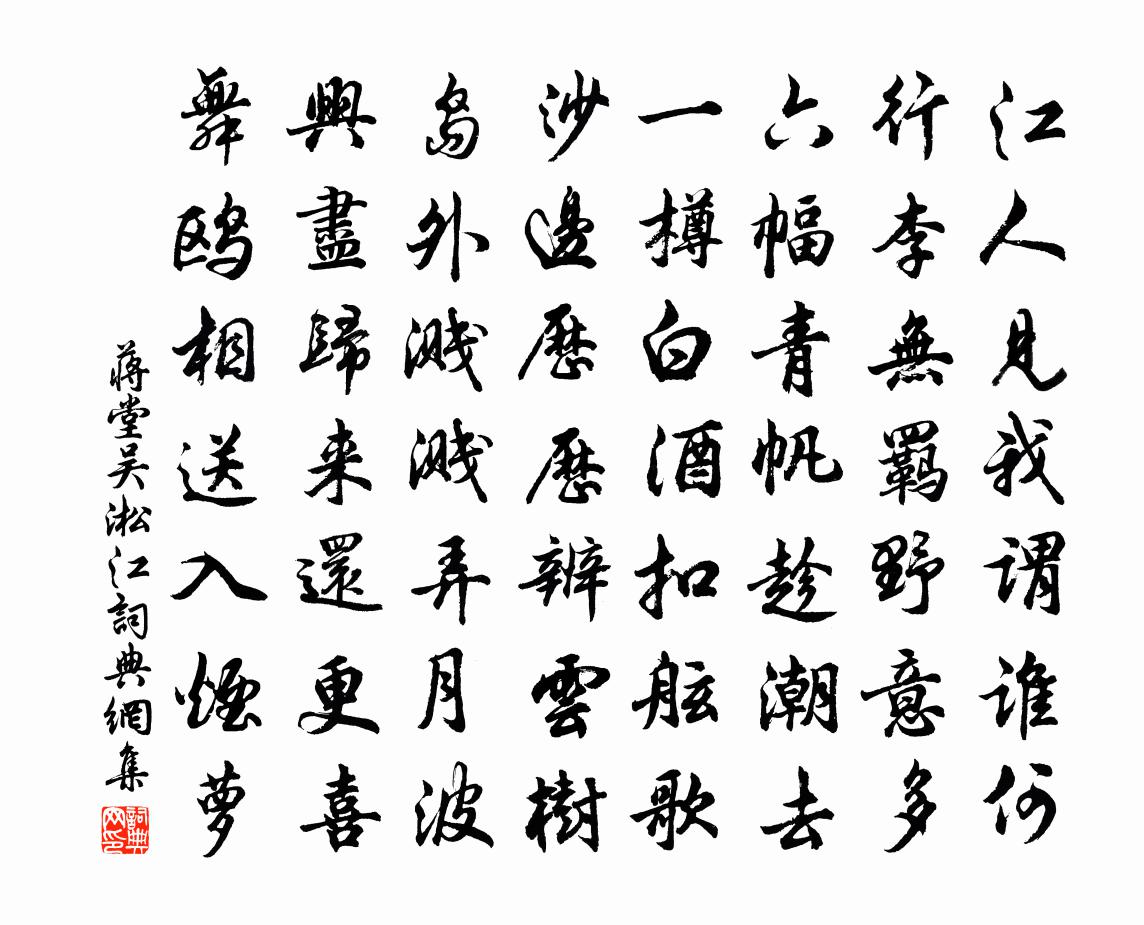 江人見我謂誰何
行李無羈野意多
六幅青帆趁潮去
一樽白酒扣舷歌
沙邊歷歷辨雲樹
島外濺濺弄月波
興盡歸来還更喜
舞鷗相送入煙萝
蒋堂吴淞江詞典網集
詞典网印